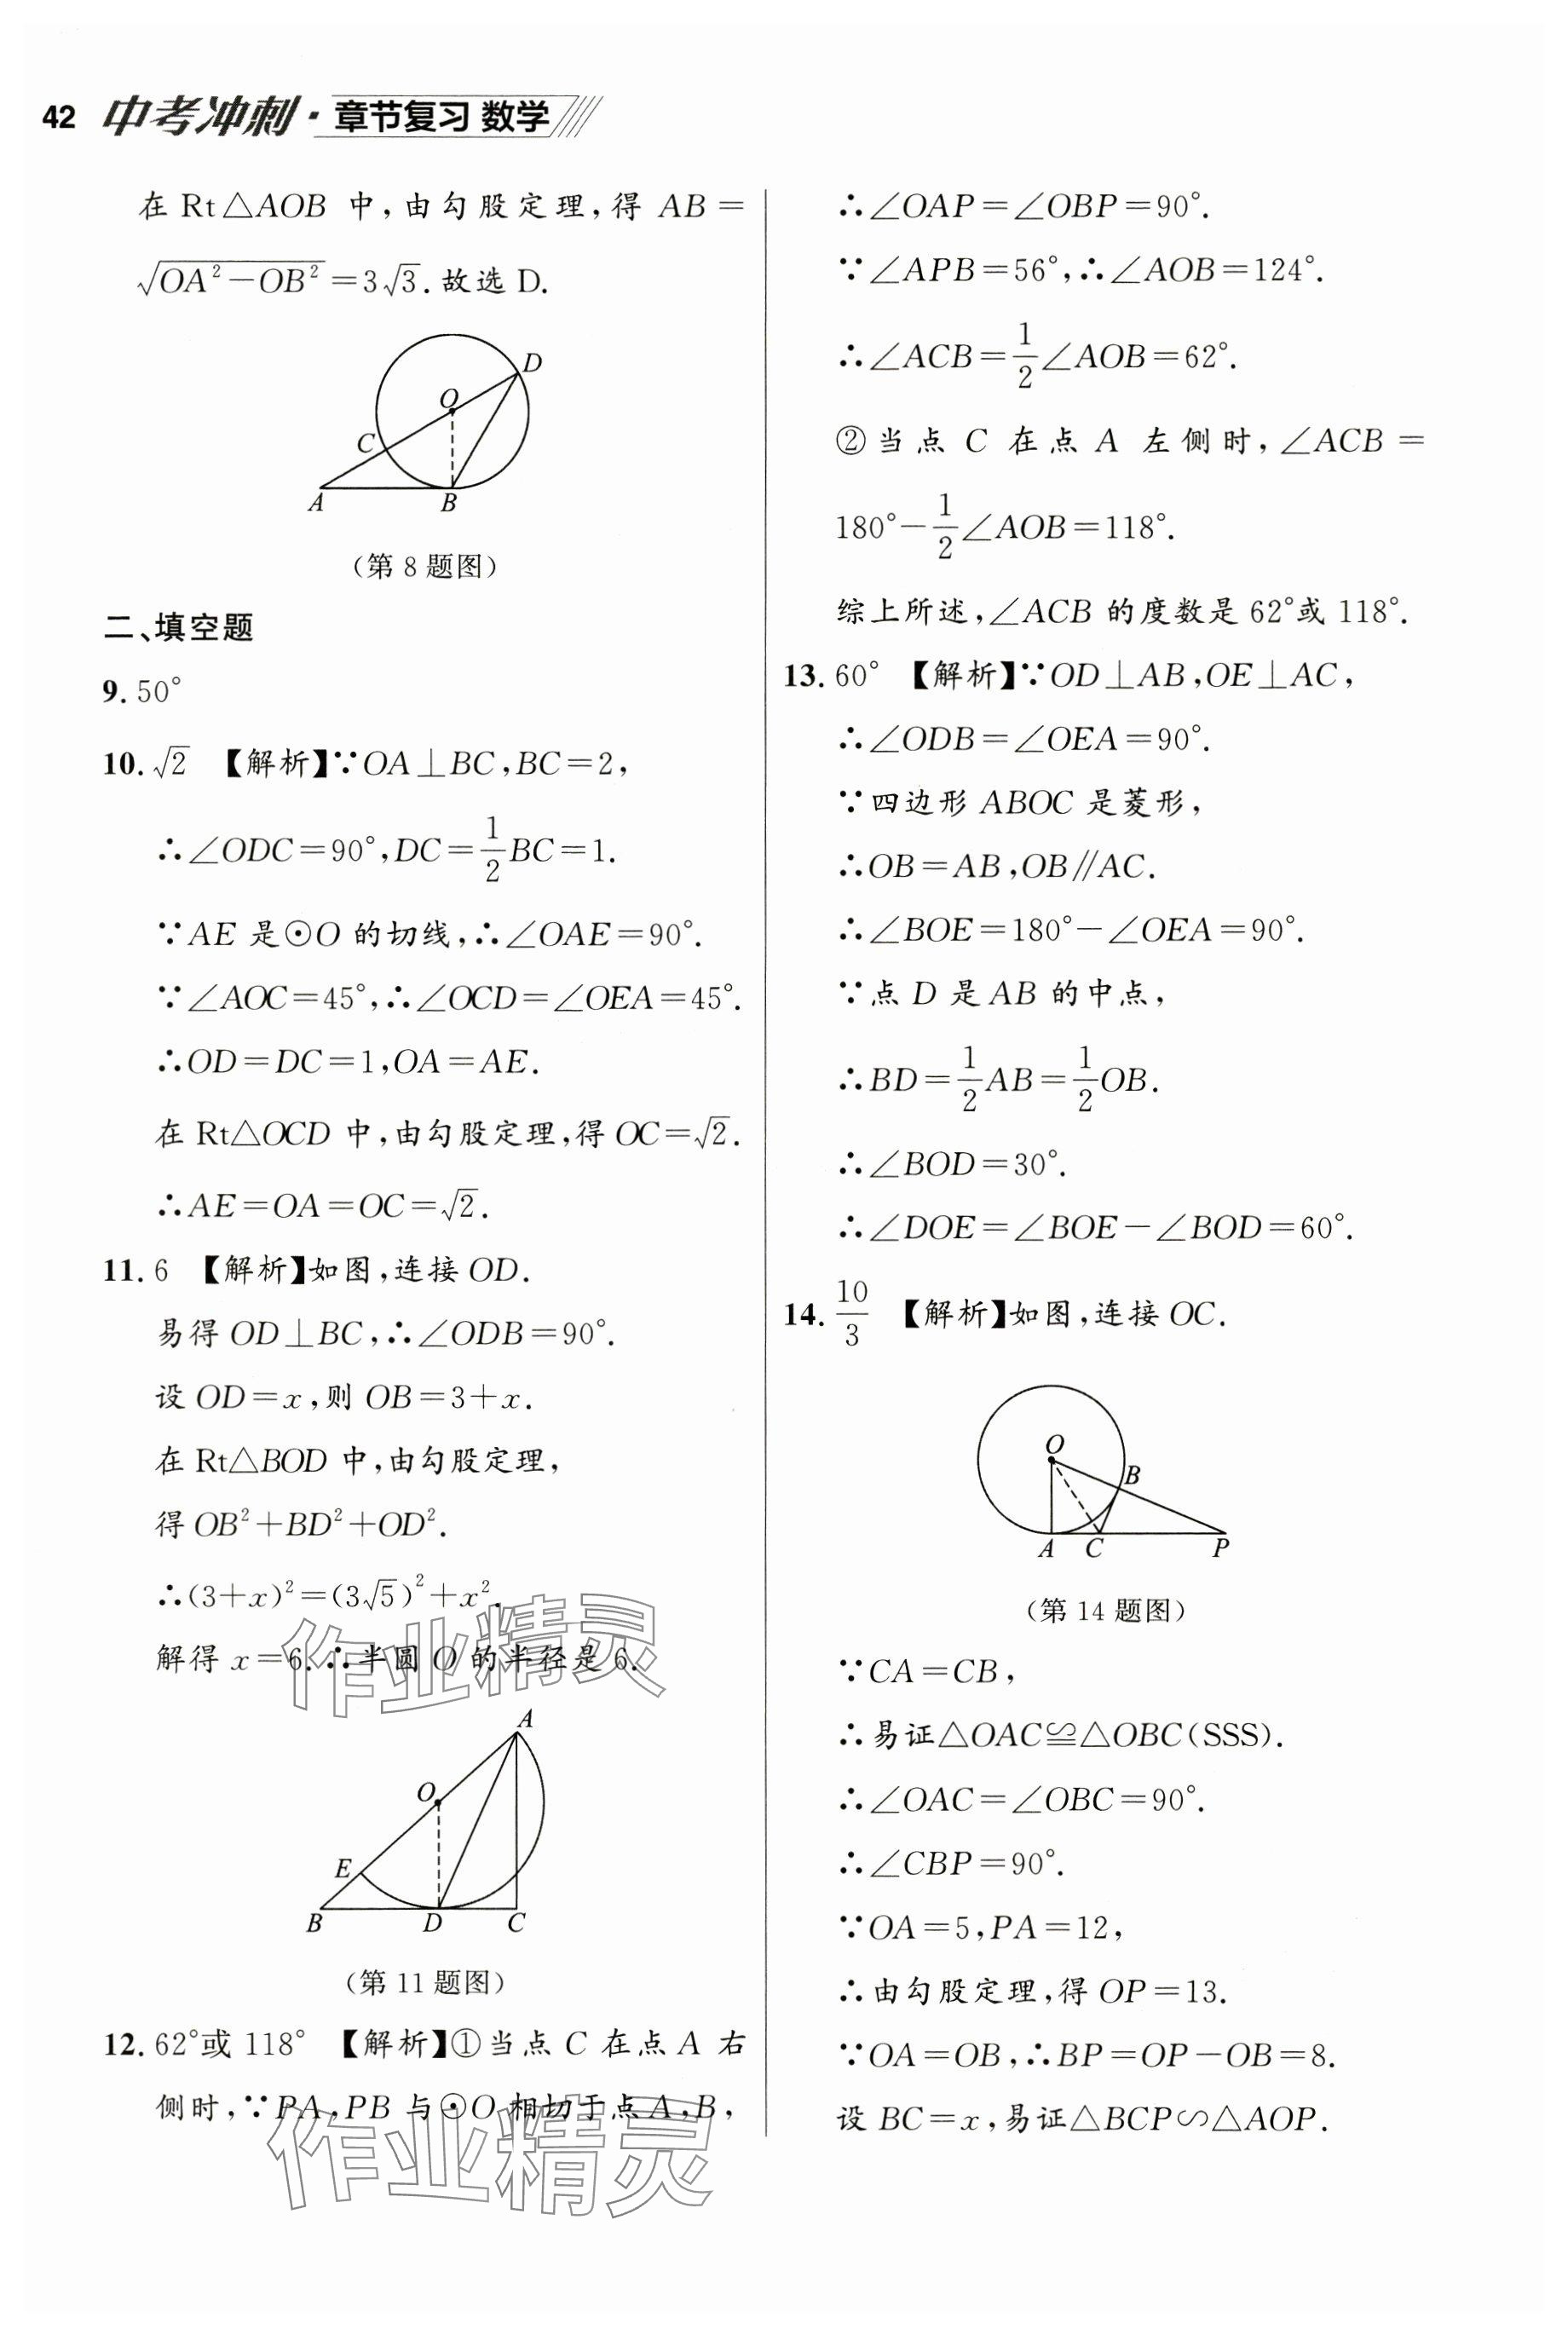 42 中考冲刺·章节复习 数学
在 Rt△AOB 中,由勾股定理,得 AB=
√(OA²-OB²)=3√3.故选 D.
D
O
C
A
B
(第 8 题图)
二、填空题
9. 50°
10. √2 【解析】∵OA⊥BC,BC=2,
∴∠ODC=90°,DC=1/2BC=1.
∵AE 是⊙O 的切线,∴∠OAE=90°.
∵∠AOC=45°,∴∠OCD=∠OEA=45°.
∴OD=DC=1,OA=AE.
在 Rt△OCD 中,由勾股定理,得 OC=√2.
∴AE=OA=OC=√2.
11. 6 【解析】如图,连接 OD.
易得 OD⊥BC,∴∠ODB=90°.
设 OD=x,则 OB=3+x.
在 Rt△BOD 中,由勾股定理,
得 OB²+BD²+OD².
∴(3+x)²=(3√5)²+x².
解得 x=6.∴半圆 O 的半径是 6.
作业精灵
A
O
E
B
D
C
(第 11 题图)
12. 62°或 118° 【解析】①当点 C 在点 A 右
侧时,∵PA,PB 与⊙O 相切于点 A,B,
作业精灵
∴∠OAP=∠OBP=90°.
∵∠APB=56°,∴∠AOB=124°.
∴∠ACB=1/2∠AOB=62°.
②当点 C 在点 A 左侧时,∠ACB=
180°-1/2∠AOB=118°.
综上所述,∠ACB 的度数是 62°或 118°.
13. 60° 【解析】∵OD⊥AB,OE⊥AC,
∴∠ODB=∠OEA=90°.
∵四边形 ABOC 是菱形,
∴OB=AB,OB∥AC.
∴∠BOE=180°-∠OEA=90°.
∵点 D 是 AB 的中点,
∴BD=1/2AB=1/2OB.
∴∠BOD=30°.
∴∠DOE=∠BOE-∠BOD=60°.
14. 10/3 【解析】如图,连接 OC.
O
B
A
C
P
(第 14 题图)
∵CA=CB,
∴易证△OAC≌△OBC(SSS).
∴∠OAC=∠OBC=90°.
∴∠CBP=90°.
∵OA=5,PA=12,
∴由勾股定理,得 OP=13.
∵OA=OB,∴BP=OP-OB=8.
设 BC=x,易证△BCP∽△AOP.